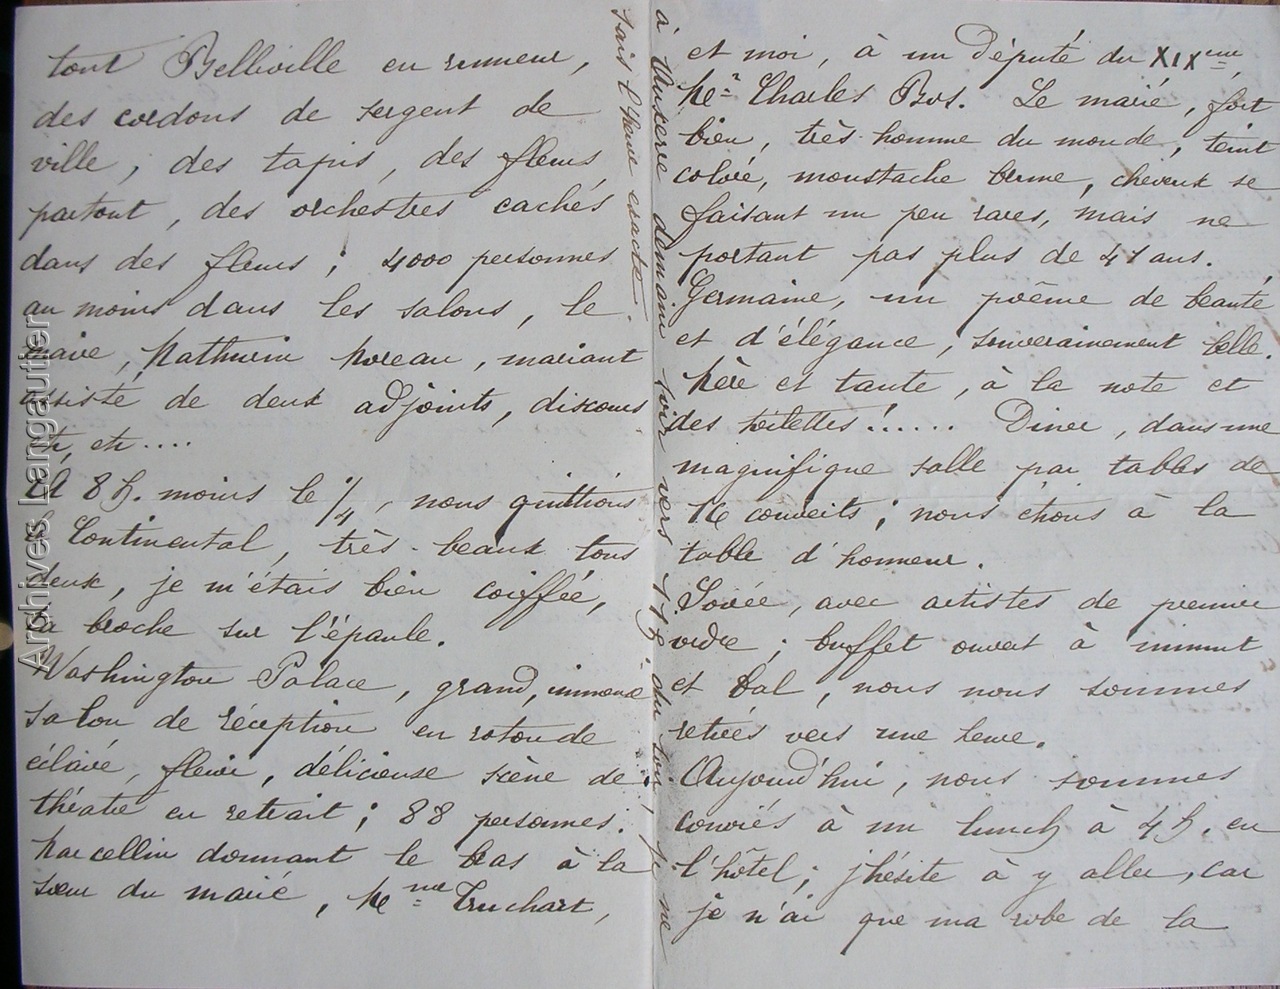 tout Belleville en rumeur,
des cordons de sergent de
ville, des tapis, des fleurs
partout, des orchestres cachés
dans des fleurs ; 4000 personnes
au moins dans les salons, le
maire, Mathurin Moreau, mariant
assisté de deux adjoints, discours
etc, etc....
A 8 h. moins le 1/4, nous quittions
le Continental, très-beaux tous
deux, je m'étais bien coiffée,
la broche sur l'épaule.
Washington Palace, grand, immense
salon de réception en rotonde
éclairé, fleuri, délicieuse scène de
théatre en retrait ; 88 personnes.
Marcellin donnant le bras à la
sœur du marié, Mme Truchart,
et moi, à un Député du XIXème,
Mr Charles Bos. Le marié, fort
bien, très-homme du monde, teint
coloré, moustache brune, cheveux se
faisant un peu rares, mais ne
portant pas plus de 41 ans.
Germaine, un poême de beauté
et d'élégance, souverainement belle.
Mère et tante, à la note et
des toilettes !...... Diner, dans une
magnifique salle par tables de
16 couverts ; nous étions à la
table d'honneur.
Soirée, avec artistes de premier
ordre ; buffet ouvert à minuit
et bal, nous nous sommes
retirés vers une heure.
Aujourd'hui, nous sommes
conviés à un lunch à 4 h. en
l'hôtel ; j'hésite à y aller, car
je n'ai que ma robe de la
à Auxerre demain soir vers 11 h. du soir ! je ne
sais l'heure exacte.
Archives Langautier